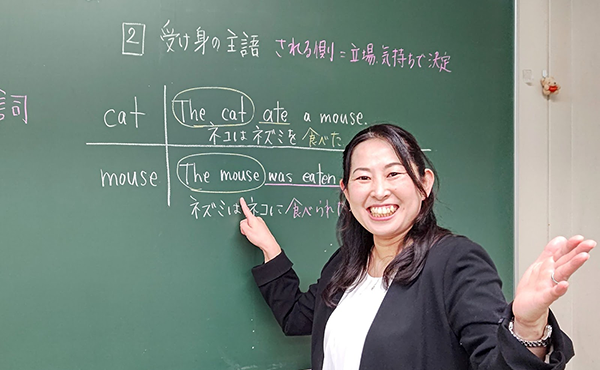 2 受け身の主語 される側=立場、気持ちで決定
詞
cat The cat ate a mouse.
ネコはネズミを食べた
mouse The mouse was eaten
ネズミはネコに食べられた